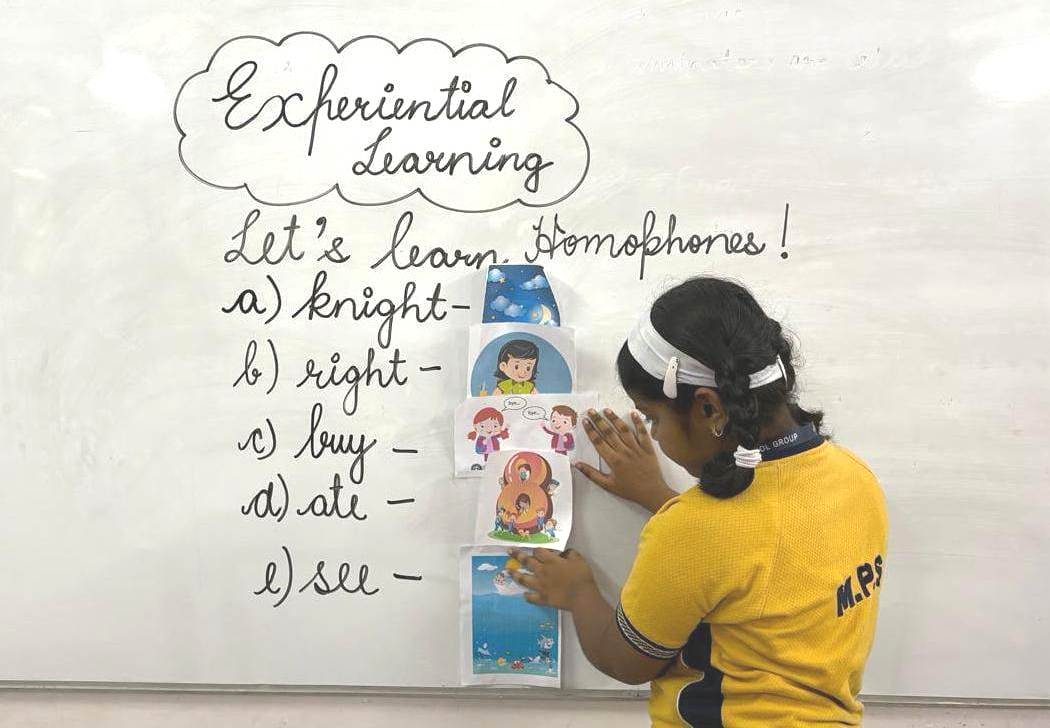 Experiential
Learning
Let's learn Homophones!
a) knight -
b) right -
c) buy -
d) ate -
e) see -
Bye...
Bye...
8
OL GROUP
M.P.S